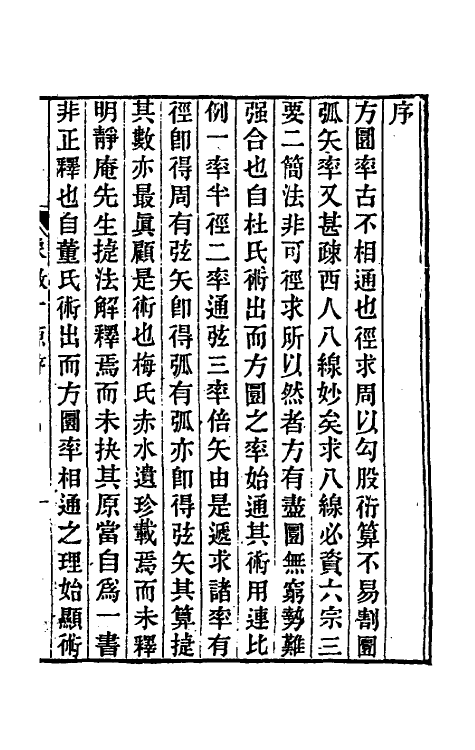 序
方圓率古不相通也徑求周以勾股衍算不易割圓
弧矢率又甚疎西人八線妙矣求八線必資六宗三
要二簡法非可徑求所以然者方有盡圓無窮勢難
强合也自杜氏術出而方圓之率始通其術用連比
例一率半徑二率通弦三率倍矢由是遞求諸率有
徑卽得周有弦矢卽得弧有弧亦卽得弦矢其算捷
其數亦最眞顧是術也梅氏赤水遺珍載焉而未釋
明靜庵先生捷法解釋焉而未抉其原當自爲一書
非正釋也自董氏術出而方圓率相通之理始顯術